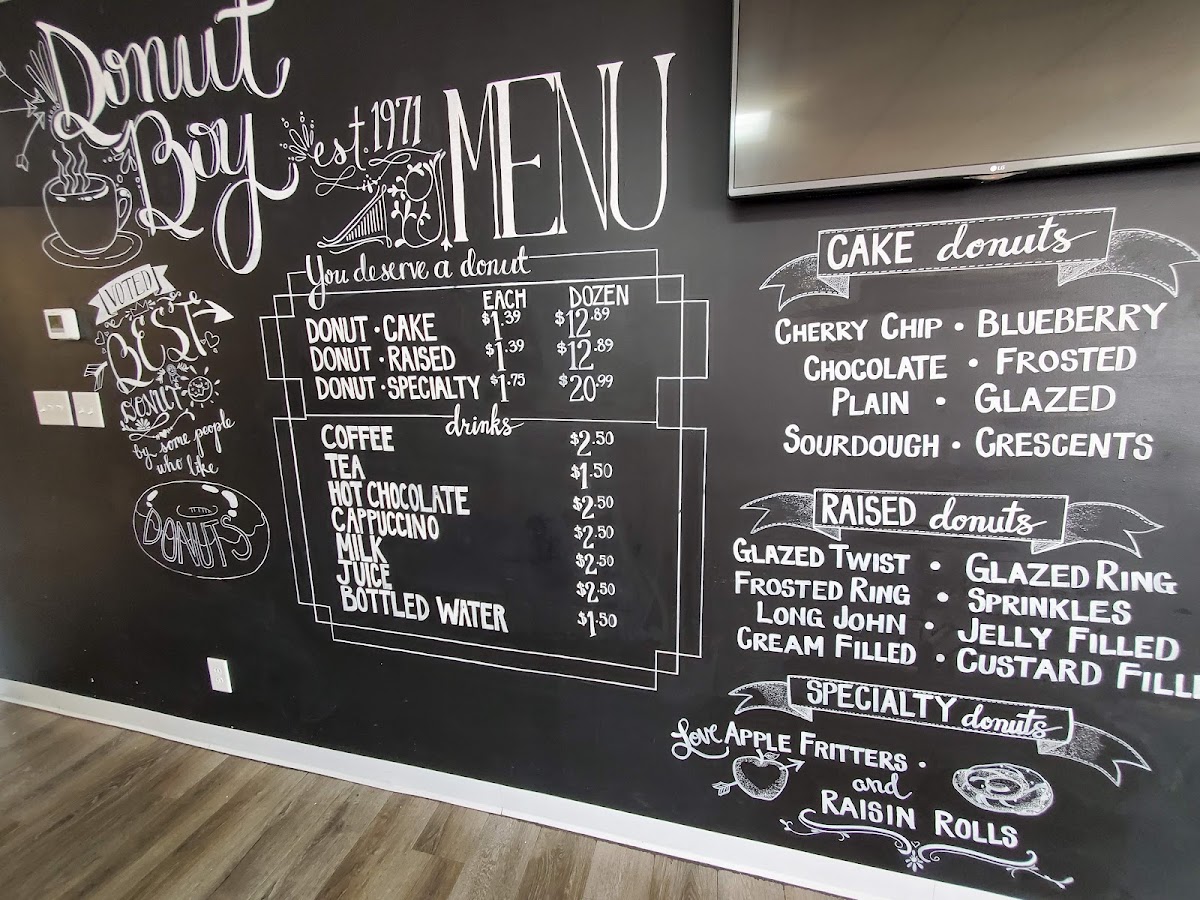 Donut
Boy
est. 1971
MENU
LG
VOTED
BEST
DONUT
by some people
who like
DONUTS
You deserve a donut
EACH DOZEN
DONUT · CAKE $1.39 $12.89
DONUT · RAISED $1.39 $12.89
DONUT · SPECIALTY $1.75 $20.99
drinks
COFFEE $2.50
TEA $1.50
HOT CHOCOLATE $2.50
CAPPUCCINO $2.50
MILK $2.50
JUICE $2.50
BOTTLED WATER $1.50
CAKE donuts
CHERRY CHIP · BLUEBERRY
CHOCOLATE · FROSTED
PLAIN · GLAZED
SOURDOUGH · CRESCENTS
RAISED donuts
GLAZED TWIST · GLAZED RING
FROSTED RING · SPRINKLES
LONG JOHN · JELLY FILLED
CREAM FILLED · CUSTARD FILL
SPECIALTY donuts
Love APPLE FRITTERS ·
and
RAISIN ROLLS